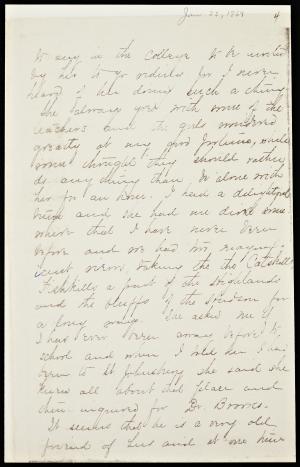 Jan. 22, 1869 4
to any in the College to be invited
by her to go riding for I never
heard of her doing such a thing
She always goes with some of the
teachers and the girls wondered
greatly at my good fortune, while
some thought they should rather
do anything than be alone with
her for an hour. I had a delightful
time and she had me drive some
where that I have never been
before and we had two magnifi-
cent views, taking the the Catskills
Fishkills a part of the Highlands
and the bluffs of the Hudson for
a long ways. She asked me if
I had ever been away before to
school and when I told her I had
been to St Johnsbury she said she
knew all about that place and
then inquired for Dr. Brooks.
It seems that he is a very old
friend of hers and at one time